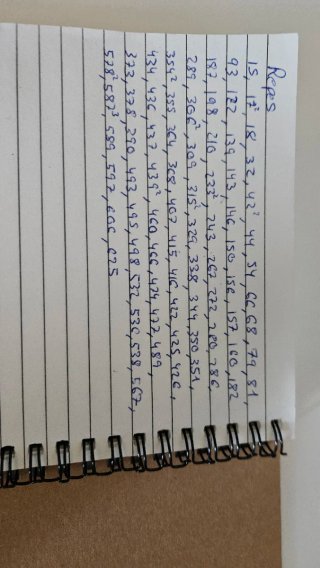 Repes
15, 17², 18, 32, 42², 44, 54, 66, 68, 79, 81,
93, 122, 139, 143, 146, 150, 156, 157, 160, 182
187, 198, 210, 233², 243, 267, 272, 280, 286,
289, 306², 309, 315², 329, 338, 344, 350, 351,
354², 355, 364, 368, 407, 415, 416, 422, 425, 426,
434, 436, 437, 439², 460, 466, 474, 477, 489,
373, 378, 290, 493, 495, 498, 532, 536, 538, 567,
578², 587³, 589, 597, 606, 625